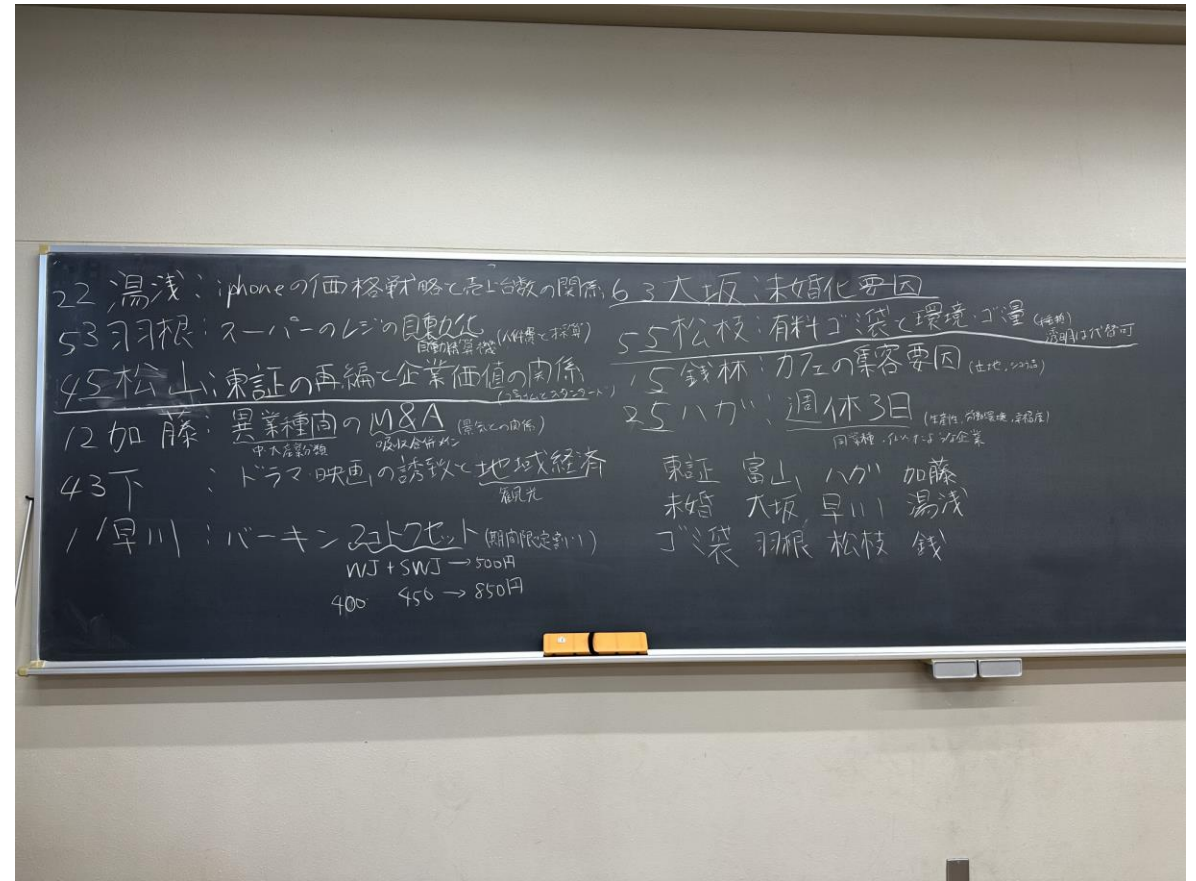 22 湯浅:iphoneの価格戦略と売上台数の関係
53 羽根:スーパーのレジの自動化(人件費と採算)
自動精算機
45 松山:東証の再編と企業価値の関係
12 加藤:異業種間のM&A(景気との関係)
中大産業分類 吸収合併メイン
43 下 :ドラマ・映画の誘致と地域経済
観光
11 早川:バーキン 2コトクセット(期間限定割り)
WJ+SWJ→500円
400 450→850円
63 大坂:未婚化要因
55 松枝:有料ゴミ袋と環境・ゴミ量
透明は代替可
15 銭林:カフェの集客要因
25 ハガ:週休3日(生産性、労働環境、幸福度)
同業種・似たような企業
東証 富山 ハガ 加藤
未婚 大坂 早川 湯浅
ゴミ袋 羽根 松枝 銭